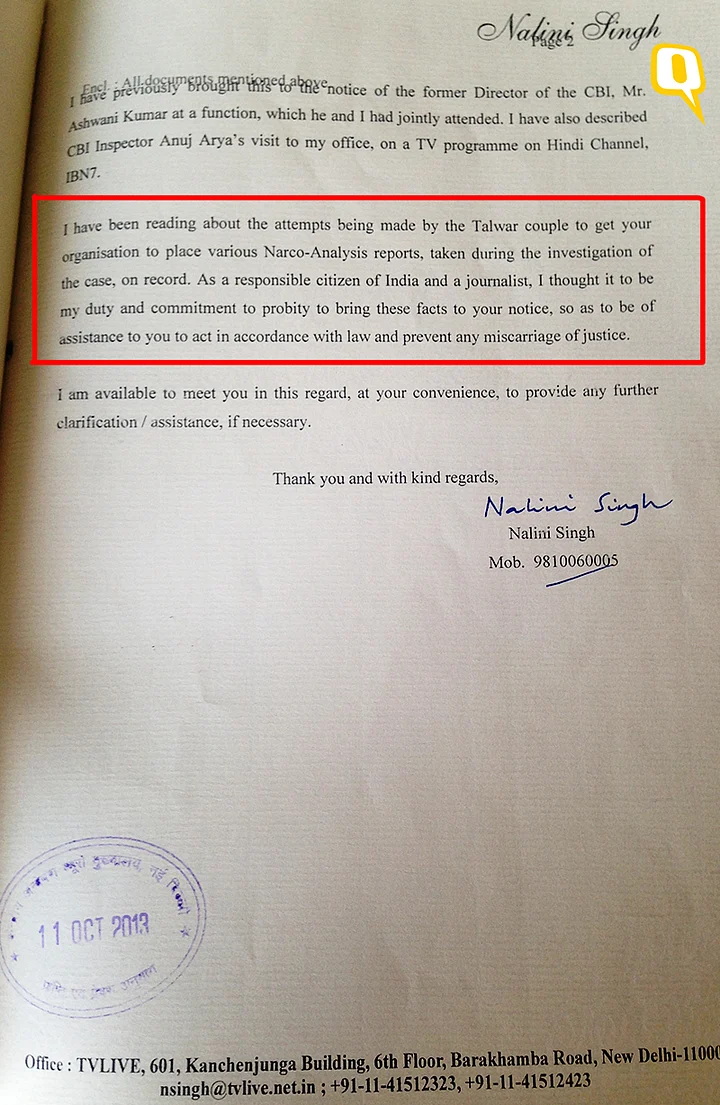 Nalini Singh
Page 2
Q
Encl. : All documents mentioned above
I have previously brought this to the notice of the former Director of the CBI, Mr.
Ashwani Kumar at a function, which he and I had jointly attended. I have also described
CBI Inspector Anuj Arya's visit to my office, on a TV programme on Hindi Channel,
IBN7.
I have been reading about the attempts being made by the Talwar couple to get your
organisation to place various Narco-Analysis reports, taken during the investigation of
the case, on record. As a responsible citizen of India and a journalist, I thought it to be
my duty and commitment to probity to bring these facts to your notice, so as to be of
assistance to you to act in accordance with law and prevent any miscarriage of justice.
I am available to meet you in this regard, at your convenience, to provide any further
clarification / assistance, if necessary.
Thank you and with kind regards,
Nalini Singh
Nalini Singh
Mob. 9810060005
नई
11 OCT 2013
Office : TVLIVE, 601, Kanchenjunga Building, 6th Floor, Barakhamba Road, New Delhi-11000
nsingh@tvlive.net.in ; +91-11-41512323, +91-11-41512423